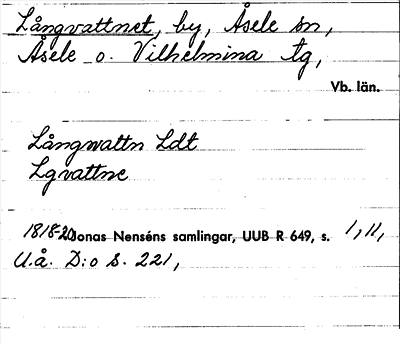 Långvattnet, by, Åsele sn,
Åsele o. Vilhelmina tg,
Vb. län.
Långwattn Ldt
Lgvattne
1818-20 Jonas Nenséns samlingar, UUB R 649, s. 1, 11,
U.å. D:o S. 221,